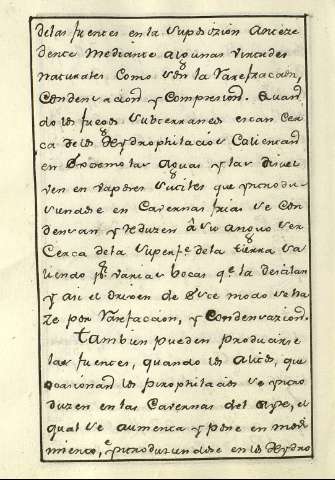 de las fuentes en la suposizion anteze
dente mediante algunas virtudes
naturales como son la Rarefraccion,
Condensacion y Compresion. Quan
do los fuegos subterraneos estan cer
ca de los Hydrophilacios calientan
en extremo las Aguas y las disuel
ven en vapores sutiles que introdu
siendose en Cavernas frias se con
densan y reduzen â su antiguo ser
cerca de la superfe. de la tierra sa
liendo pr. varias bocas qe. la destilan
y asi el origen de este modo se ha
ze por Rarefaccion, y Condensazion.
tambien pueden producirse
las fuentes, quando los aires, que
ocasionan los pirophilacios se intro
duzen en las Cavernas del ayre, el
qual se aumenta y pone en movi
miento, é introduziendose en los Hydro